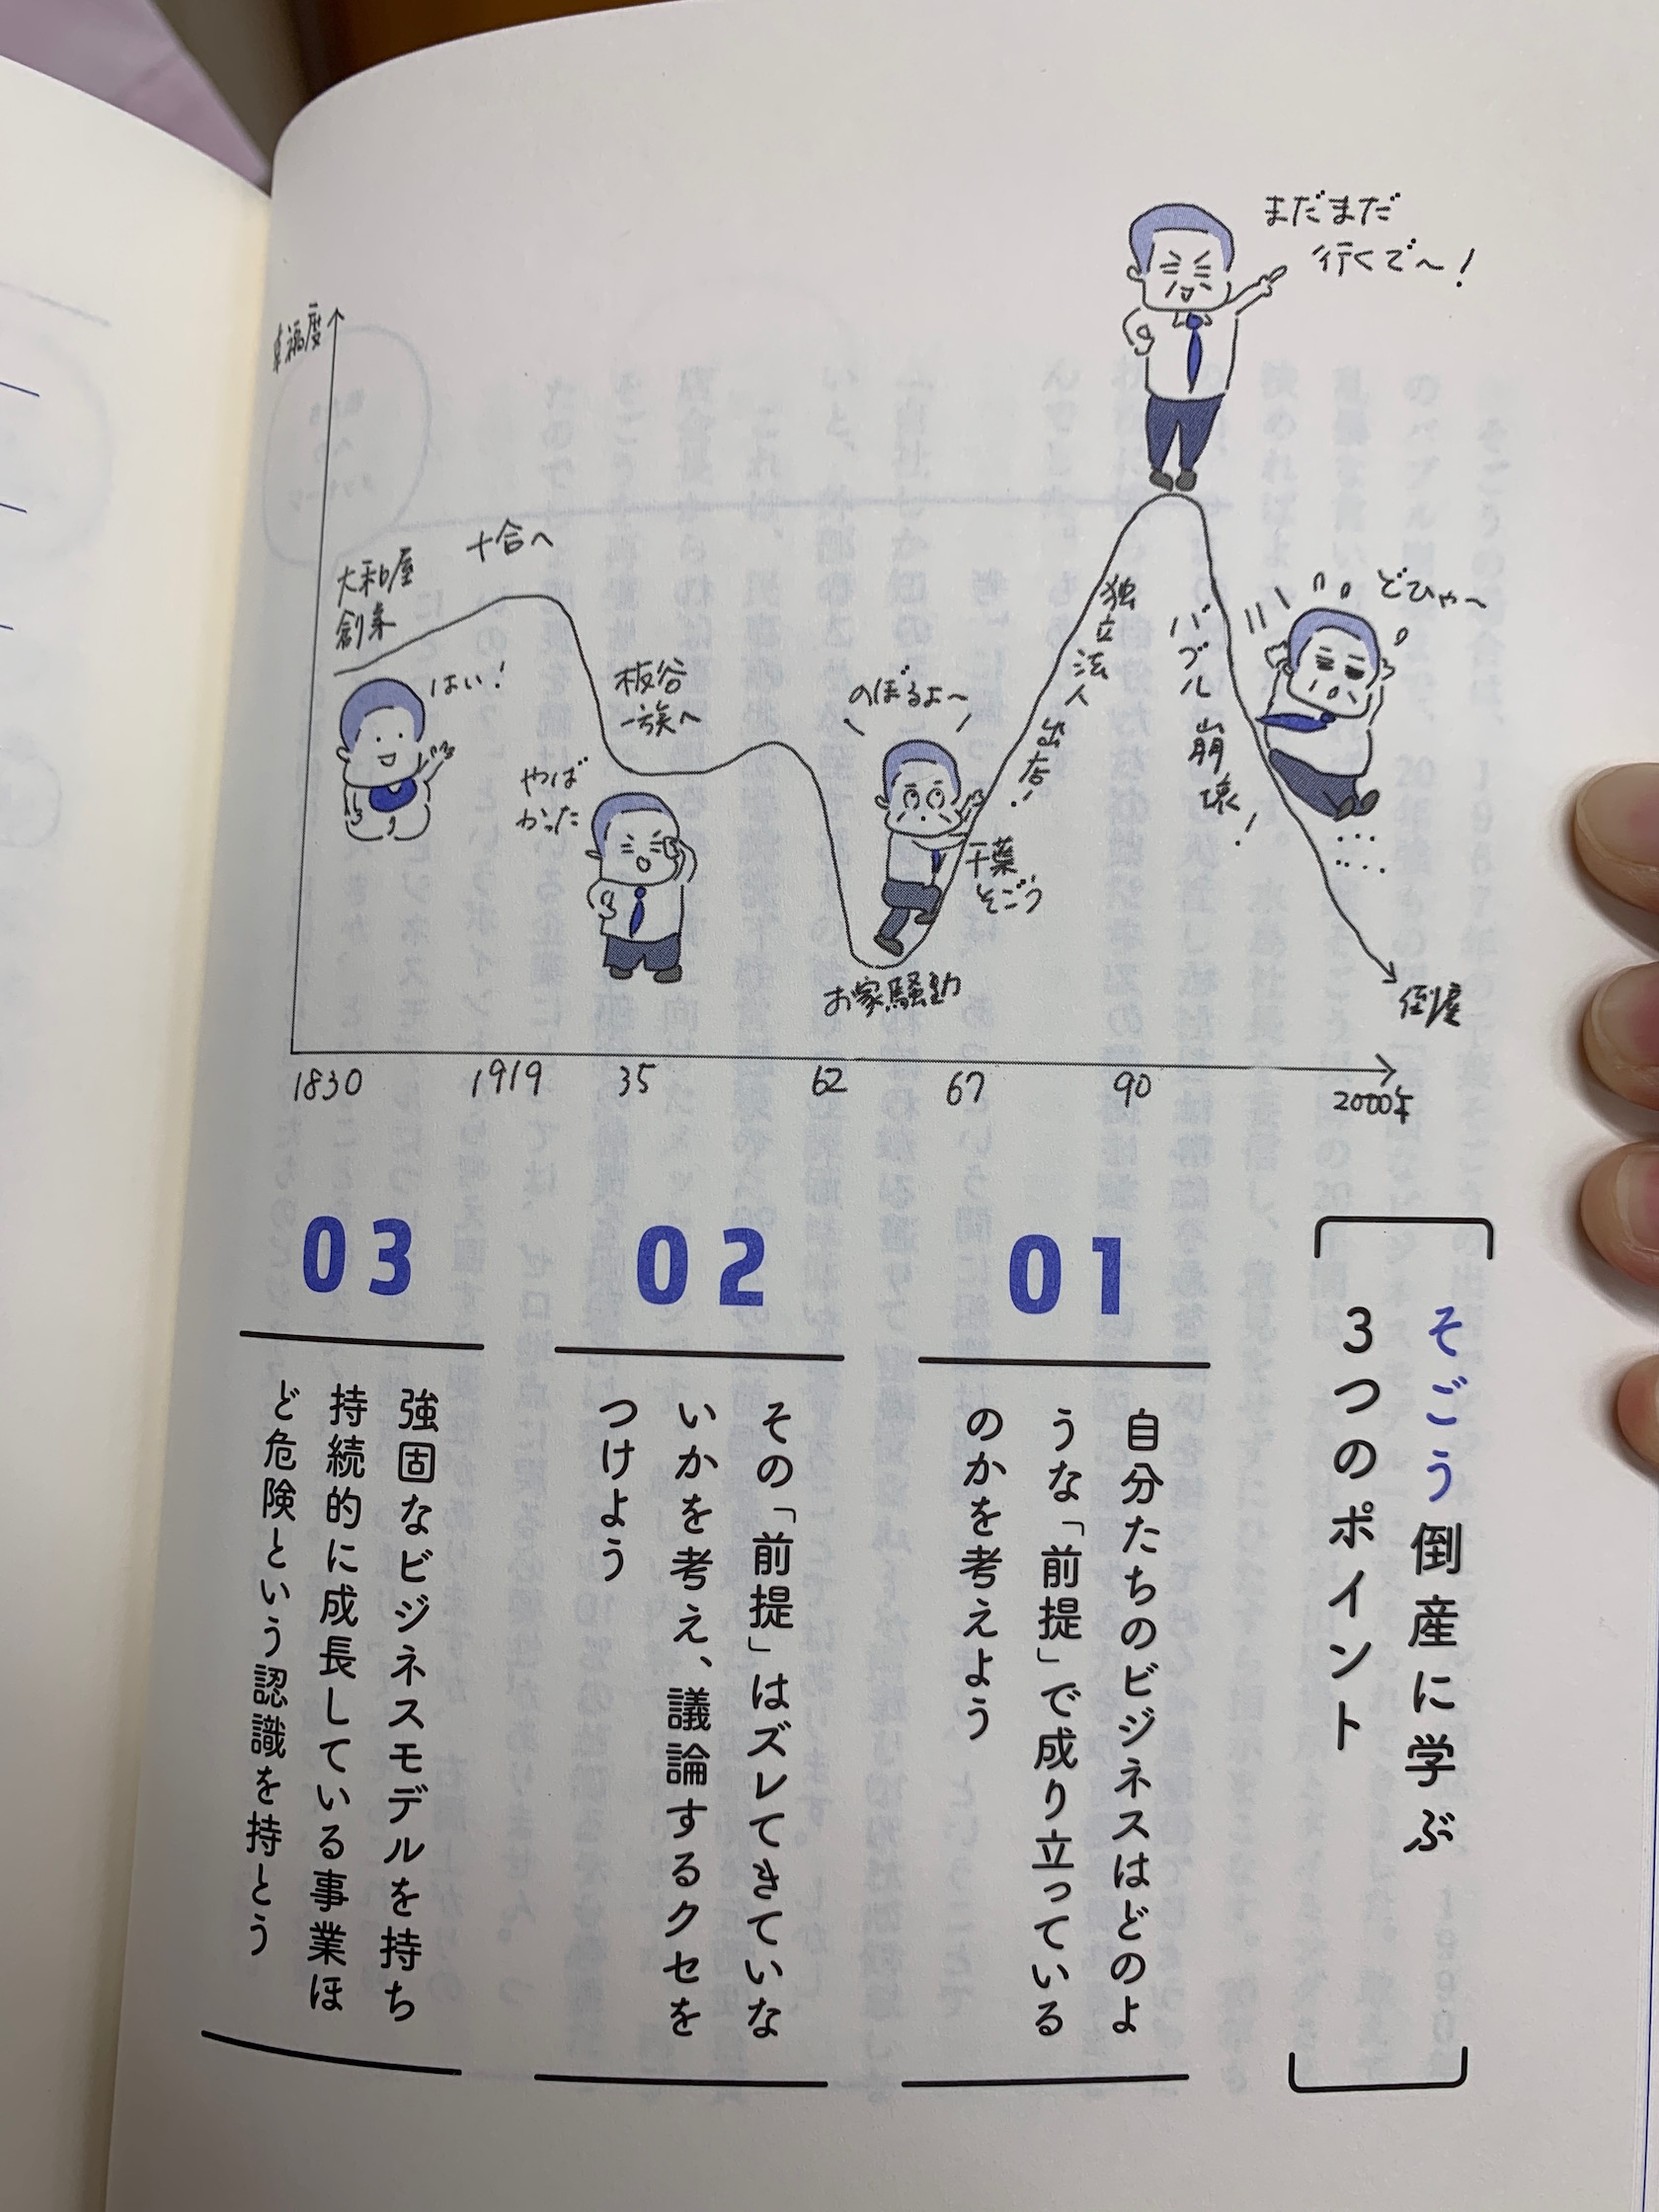 まだまだ
行くで〜!
福度
大和屋
創業
十合へ
はい!
板谷
一族へ
やば
かった
のぼるよ〜
千葉
そごう
お家騒動
独立法人出店!
バブル崩壊!
どひゃ〜
倒産
1830
1919
35
62
67
90
2000年
そごう倒産に学ぶ
3つのポイント
01
自分たちのビジネスはどのよ
うな「前提」で成り立っている
のかを考えよう
02
その「前提」はズレてきていな
いかを考え、議論するクセを
つけよう
03
強固なビジネスモデルを持ち
持続的に成長している事業ほ
ど危険という認識を持とう